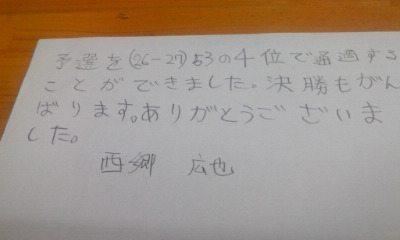 予選を(26-27)53の4位で通過する
ことができました。決勝もがん
ばります。ありがとうございま
した。
西郷 広也